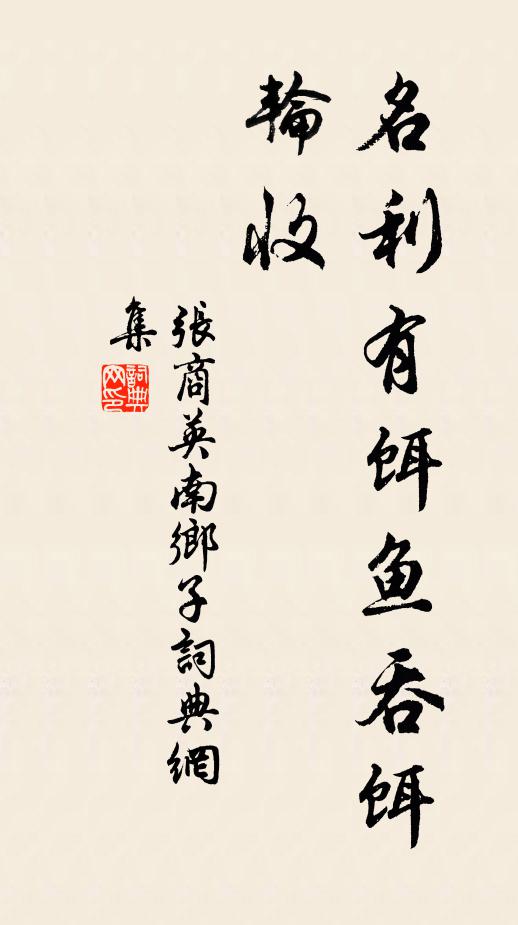 名利有餌鱼吞餌
輪收
張商英南鄉子詞典網
集
詞典
网印